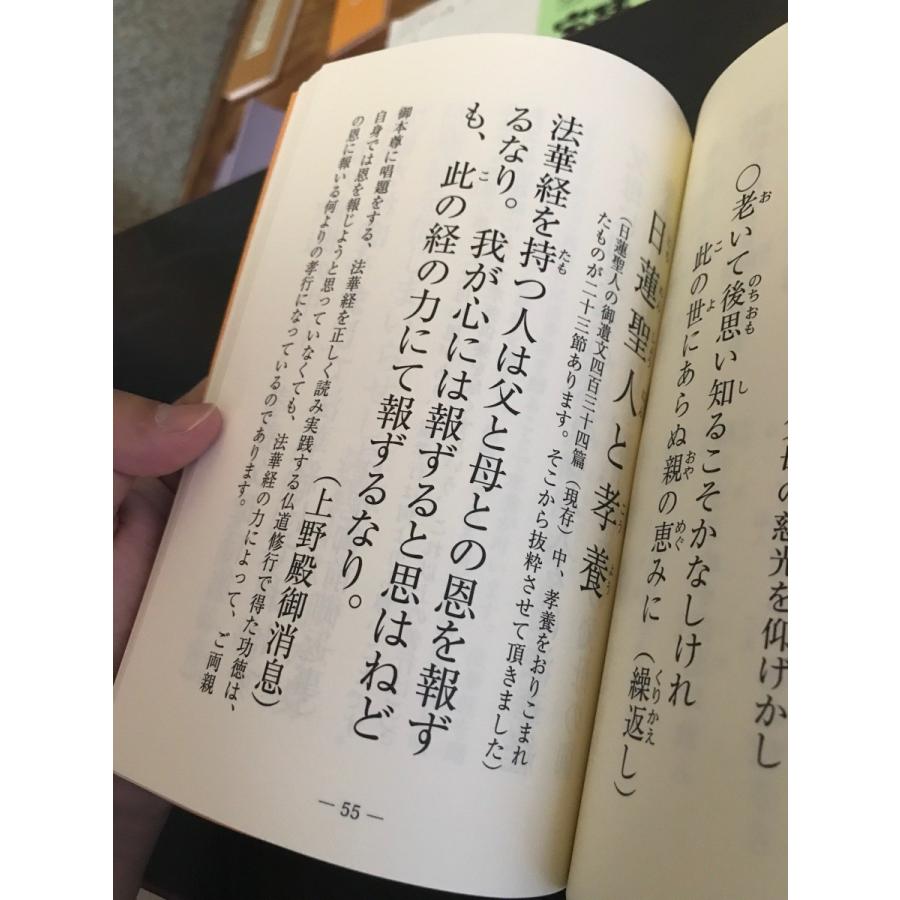 の慈光を仰げかし
○老いて後思い知るこそかなしけれ
此の世にあらぬ親の恵みに（繰返し）
日蓮聖人と孝養
（日蓮聖人の御遺文四百三十四篇（現存）中、孝養をおりこまれ
たものが二十三節あります。そこから抜粋させて頂きました）
法華経を持つ人は父と母との恩を報ず
るなり。我が心には報ずると思はねど
も、此の経の力にて報ずるなり。
（上野殿御消息）
御本尊に唱題をする、法華経を正しく読み実践する仏道修行で得た功徳は、
自身では恩を報じようと思っていなくても、法華経の力によって、ご両親
の恩に報いる何よりの孝行になっているのであります。
— 55 —